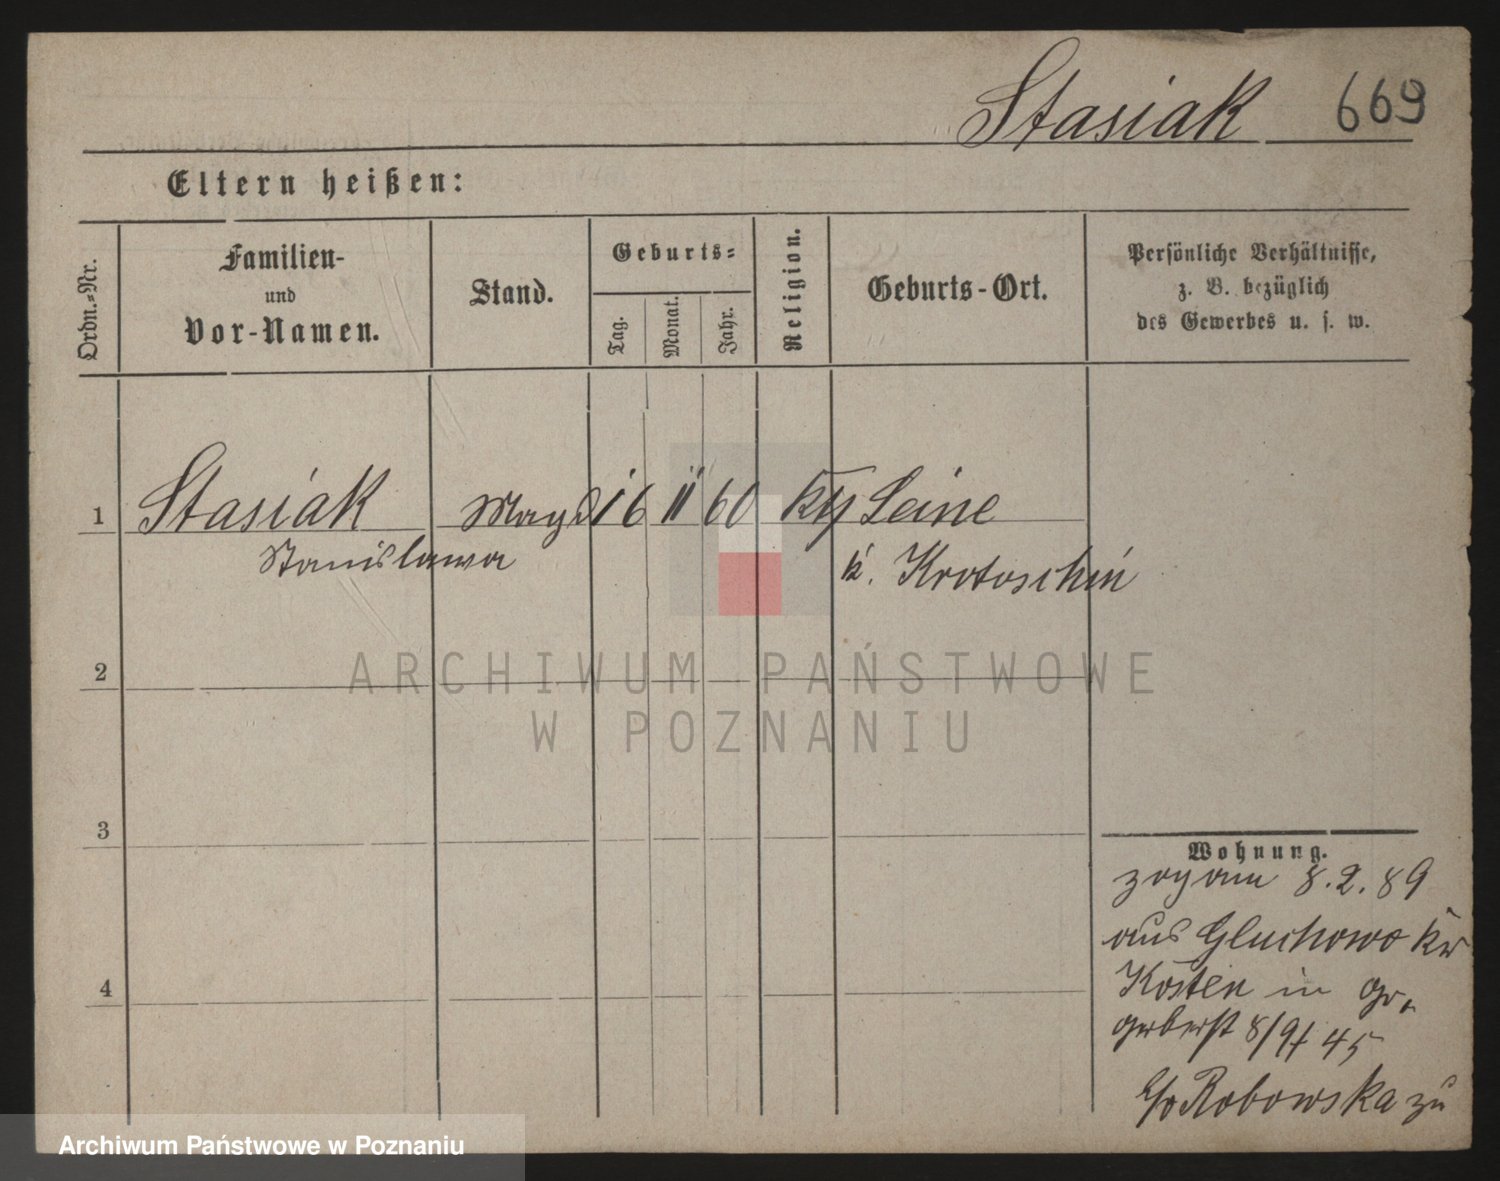 Stasiak 669
Eltern heißen:
Ordn.=Nr.
Familien-
und
Vor-Namen.
Stand.
Geburts=
Tag.
Monat.
Jahr.
Religion.
Geburts-Ort.
Persönliche Verhältnisse,
z. B. bezüglich
des Gewerbes u. s. w.
1 Stasiak Magd 16 11 60 kth Leine
Stanislawa
k. Krotoschin
2
3
4
Wohnung.
zog am 8.2.89
aus Gluchowo kr
Kosten in
8/9 45
Robowska zu
ARCHIWUM PAŃSTWOWE
W POZNANIU
Archiwum Państwowe w Poznaniu